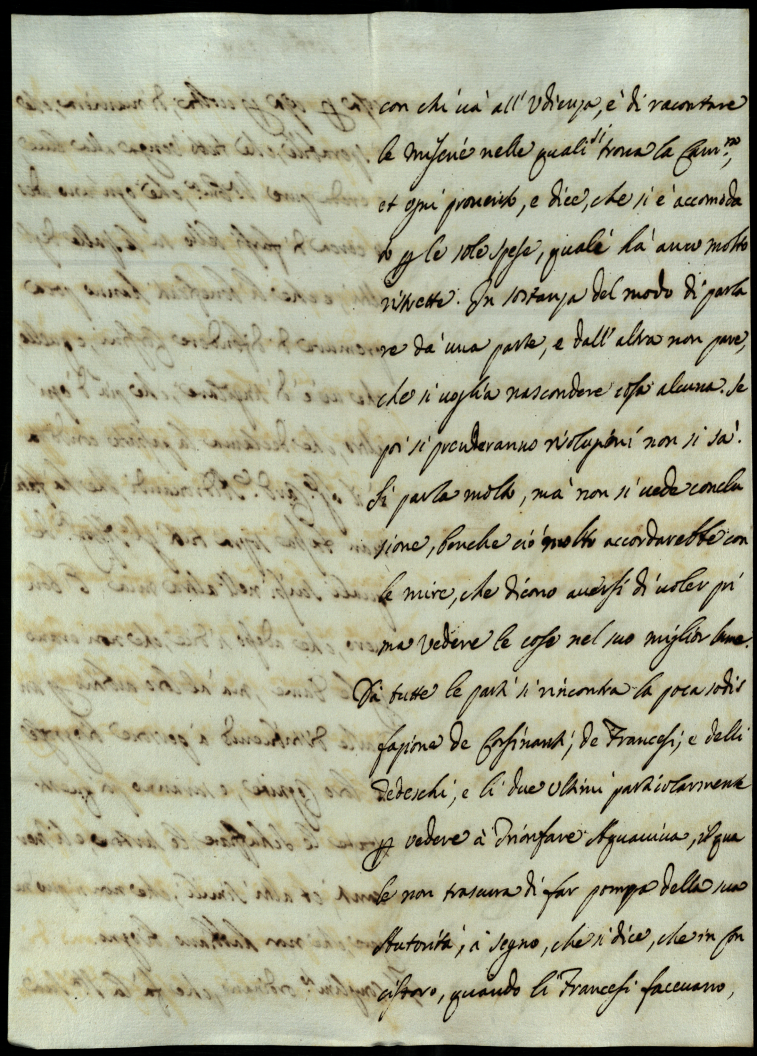 con chi uà all'Udienza, è di racontare
le miserie nelle quali si troua la Cam.ra,
et ogni prouento, e dice, che si è accomoda
to p le sole spese, quale là auuo molto
ristrette. In sostanza del modo di parla
re dà una parte, e dall'altra non pare,
che si uoglia nascondere cosa alcuna. Se
poi si prenderanno risoluzioni non si sà.
Si parla molto, mà non si uede conclu
sione, benche ciò molto accordarebbe con
le mire, che dicono auersi di uoler pri
ma vedere le cose nel suo miglior lume.
Dà tutte le parti si rincontra la poca sodis
fazione de Corsinanti, de Francesi, e delli
Tedeschi, e li due Ultimi particolarmente
p vedere à Trionfare Aquauiua, il qua
le non trascura di far pompa della sua
Autorità, à segno, che si dice, che in Con
cistoro, quando li Francesi faceuano,